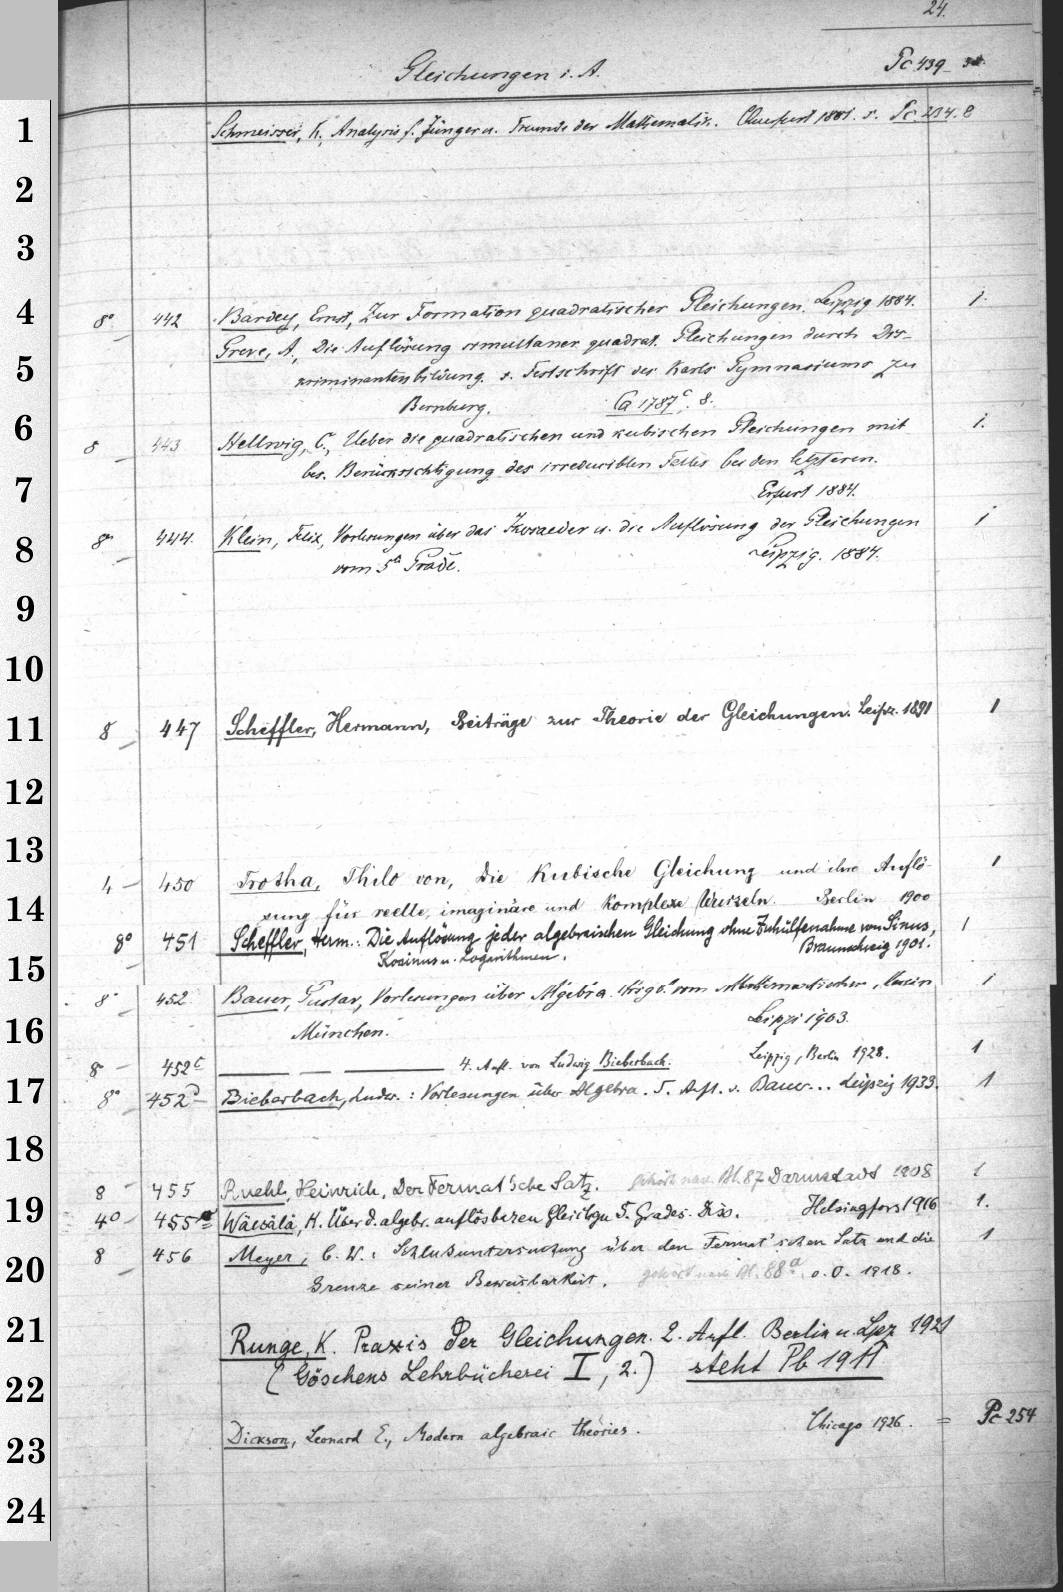 24.
Gleichungen i. A. Pc 439
1
Schmeisser, K., Analysis f. Jünger u. Freunde der Mathematik. 1881. s. Pc. 234. 8
2
3
4
8° 442 Bardey, Ernst, Zur Formation quadratischer Gleichungen. Leipzig 1884. 1.
Greve, A., Die Auflösung simultaner quadrat. Gleichungen durch Dis-
5
kriminantenbildung. s. Festschrift des Karls Gymnasiums zu
Bernburg. Ca 1787c. 8.
6
8 443 Hellwig, C., Ueber die quadratischen und kubischen Gleichungen mit 1.
bes. Berücksichtigung des irreduciblen Falles bei den letzteren.
7
Erfurt 1884.
8
8° 444. Klein, Felix, Vorlesungen über das Ikosaeder u. die Auflösung der Gleichungen 1
vom 5n Grade. Leipzig. 1884.
9
10
11
8 447 Scheffler, Hermann, Beiträge zur Theorie der Gleichungen. Leipz. 1891 1
12
13
4 450 Trotha, Thilo von, Die Kubische Gleichung und ihre Auflö- 1
14
sung für reelle, imaginäre und Komplexe Wurzeln. Berlin 1900
8° 451 Scheffler, Herm.: Die Auflösung jeder algebraischen Gleichung ohne Zuhülfenahme von Sinus, 1
Kosinus u. Logarithmen. Braunschweig 1901.
15
8° 452 Bauer, Gustav, Vorlesungen über Algebra. Hrsg. vom Mathematischen Verein 1
16
München. Leipzi 1903.
8 452c 4. Aufl. von Ludwig Bieberbach. Leipzig, Berlin 1928. 1
17
8° 452d Bieberbach, Ludw.: Vorlesungen über Algebra. 5. Aufl. v. Bauer... Leipzig 1933. 1
18
8 455 Ruehl, Heinrich, Der Fermat'sche Satz. gehört nach Bl. 87 Darmstadt 1908 1
19
4° 455a Väisälä, K. Über d. algebr. auflösbaren Gleichgn 5. Grades. Diss. Helsingfors 1916 1.
8 456 Meyer, C. W.: Schlusuntersuchung über den Fermat'schen Satz und die 1
20
Grenze seiner Beweisbarkeit. gehört nach Bl. 88a. o. O. 1918.
21
Runge, K. Praxis der Gleichungen. 2. Aufl. Berlin u. Lpz 1921
22
(Göschens Lehrbücherei I, 2.) steht Pb 191f
Dickson, Leonard E., Modern algebraic theories. Chicago 1926. = Pc 254
23
24